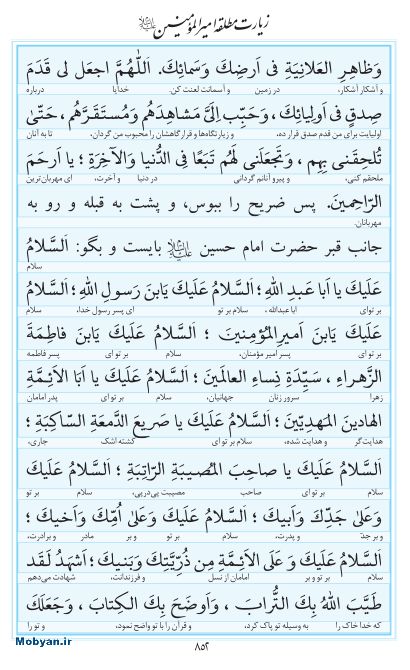 زیارت مطلقه امیرالمؤمنین علیه‌السلام
وَظاهِرِ العَلانِيَةِ فى اَرضِكَ وَسَمائِكَ. اَللّٰهُمَّ اجعَل لى قَدَمَ
و آشکار آشکار، در زمین و آسمانت لعنت کن. خدایا درباره
صِدقٍ فى اَولِيائِكَ، وَحَبِّب اِلَىَّ مَشاهِدَهُم وَمُستَقَرَّهُم، حَتّىٰ
اولیایت برای من قدم صدق قرار ده، و زیارتگاه‌ها و قرارگاهشان را محبوب من گردان، تا به آنان
تُلحِقَنى بِهِم، وَتَجعَلَنى لَهُم تَبَعًا فِى الدُّنيا وَالآخِرَةِ؛ يا اَرحَمَ
ملحقم کنی، و پیرو آنانم گردانی در دنیا و آخرت، ای مهربان‌ترین
الرّاحِمينَ. پس ضریح را ببوس، و پشت به قبله و رو به
مهربانان.
جانب قبر حضرت امام حسین علیه‌السلام بایست و بگو: اَلسَّلامُ
سلام
عَلَيكَ يا اَبا عَبدِ اللهِ؛ اَلسَّلامُ عَلَيكَ يَابنَ رَسولِ اللهِ؛ اَلسَّلامُ
بر تو ای اباعبدالله، سلام بر تو ای پسر رسول خدا، سلام
عَلَيكَ يَابنَ اَميرِالمُؤمِنينَ؛ اَلسَّلامُ عَلَيكَ يَابنَ فاطِمَةَ
بر تو ای پسر امیر مؤمنان، سلام بر تو ای پسر فاطمه
الزَّهراءِ، سَيِّدَةِ نِساءِ العالَمينَ؛ اَلسَّلامُ عَلَيكَ يا اَبَا الاَئِمَّةِ
زهرا سرور زنان جهانیان، سلام بر تو ای پدر امامان
الهادينَ المَهدِيّينَ؛ اَلسَّلامُ عَلَيكَ يا صَريعَ الدَّمعَةِ السّاكِبَةِ؛
هدایت‌گر و هدایت شده، سلام بر تو ای کشته اشک جاری،
اَلسَّلامُ عَلَيكَ يا صاحِبَ المُصيبَةِ الرّاتِبَةِ؛ اَلسَّلامُ عَلَيكَ
سلام بر تو ای صاحب مصیبت پی‌درپی، سلام بر تو
وَعَلىٰ جَدِّكَ وَاَبيكَ؛ اَلسَّلامُ عَلَيكَ وَعَلىٰ اُمِّكَ وَاَخيكَ؛
و بر جدّ و پدرت، سلام بر تو و بر مادر و برادرت،
اَلسَّلامُ عَلَيكَ وَ عَلَى الاَئِمَّةِ مِن ذُرِّيَّتِكَ وَبَنيكَ؛ اَشهَدُ لَقَد
سلام بر تو و بر امامان از نسل و فرزندانت، شهادت می‌دهم
طَيَّبَ اللهُ بِكَ التُّرابَ، وَاَوضَحَ بِكَ الكِتابَ، وَجَعَلَكَ
که خدا خاک را به وسیله تو پاک کرد، و قرآن را با تو واضح نمود، و تو را
۸۵۲
Mobyan.ir